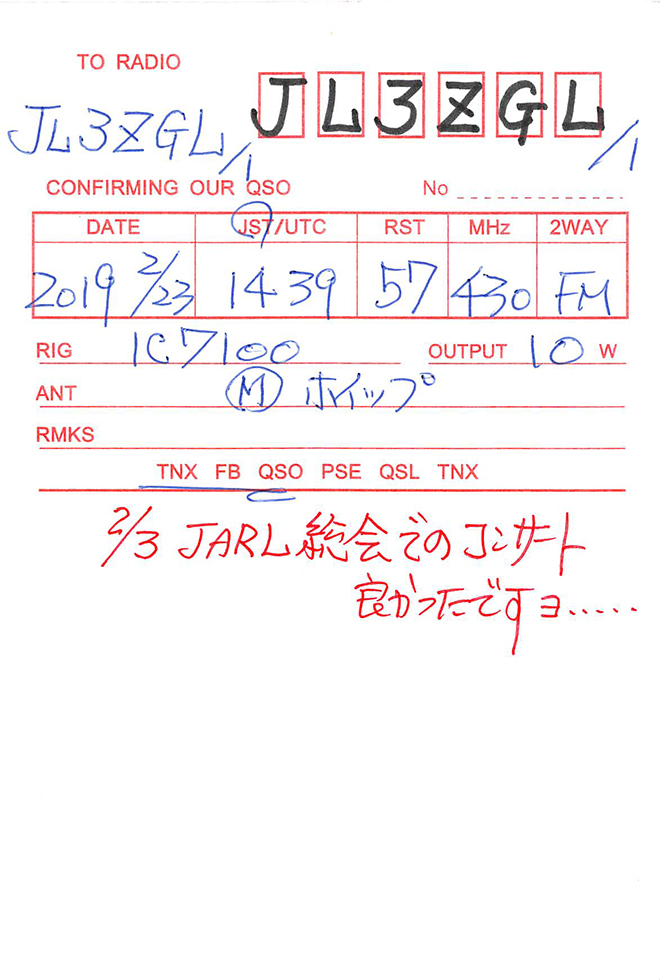 TO RADIO
JL3ZGL/1
JL3ZGL/1
CONFIRMING OUR QSO No
DATE JST/UTC RST MHz 2WAY
2019 2/23 1439 57 430 FM
RIG IC7100 OUTPUT 10 W
ANT Ⓜ ホイップ
RMKS
TNX FB QSO PSE QSL TNX
2/3 JARL総会でのコンサート
良かったですヨ.....